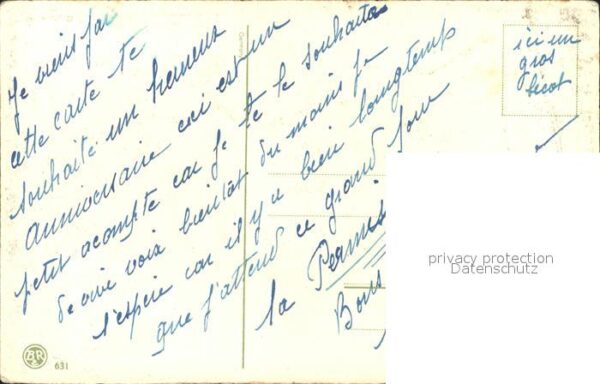 Je viens par
cette carte te
souhaite un heureux
Anniversaire ceci est un
petit acompte car je te le souhaiterai
de vive voix bientôt du moins je
l'espère car il y a bien longtemps
que j'attend ce grand jour
la Permis
Bons
ici un
gros
bécot
privacy protection
Datenschutz
AR
631